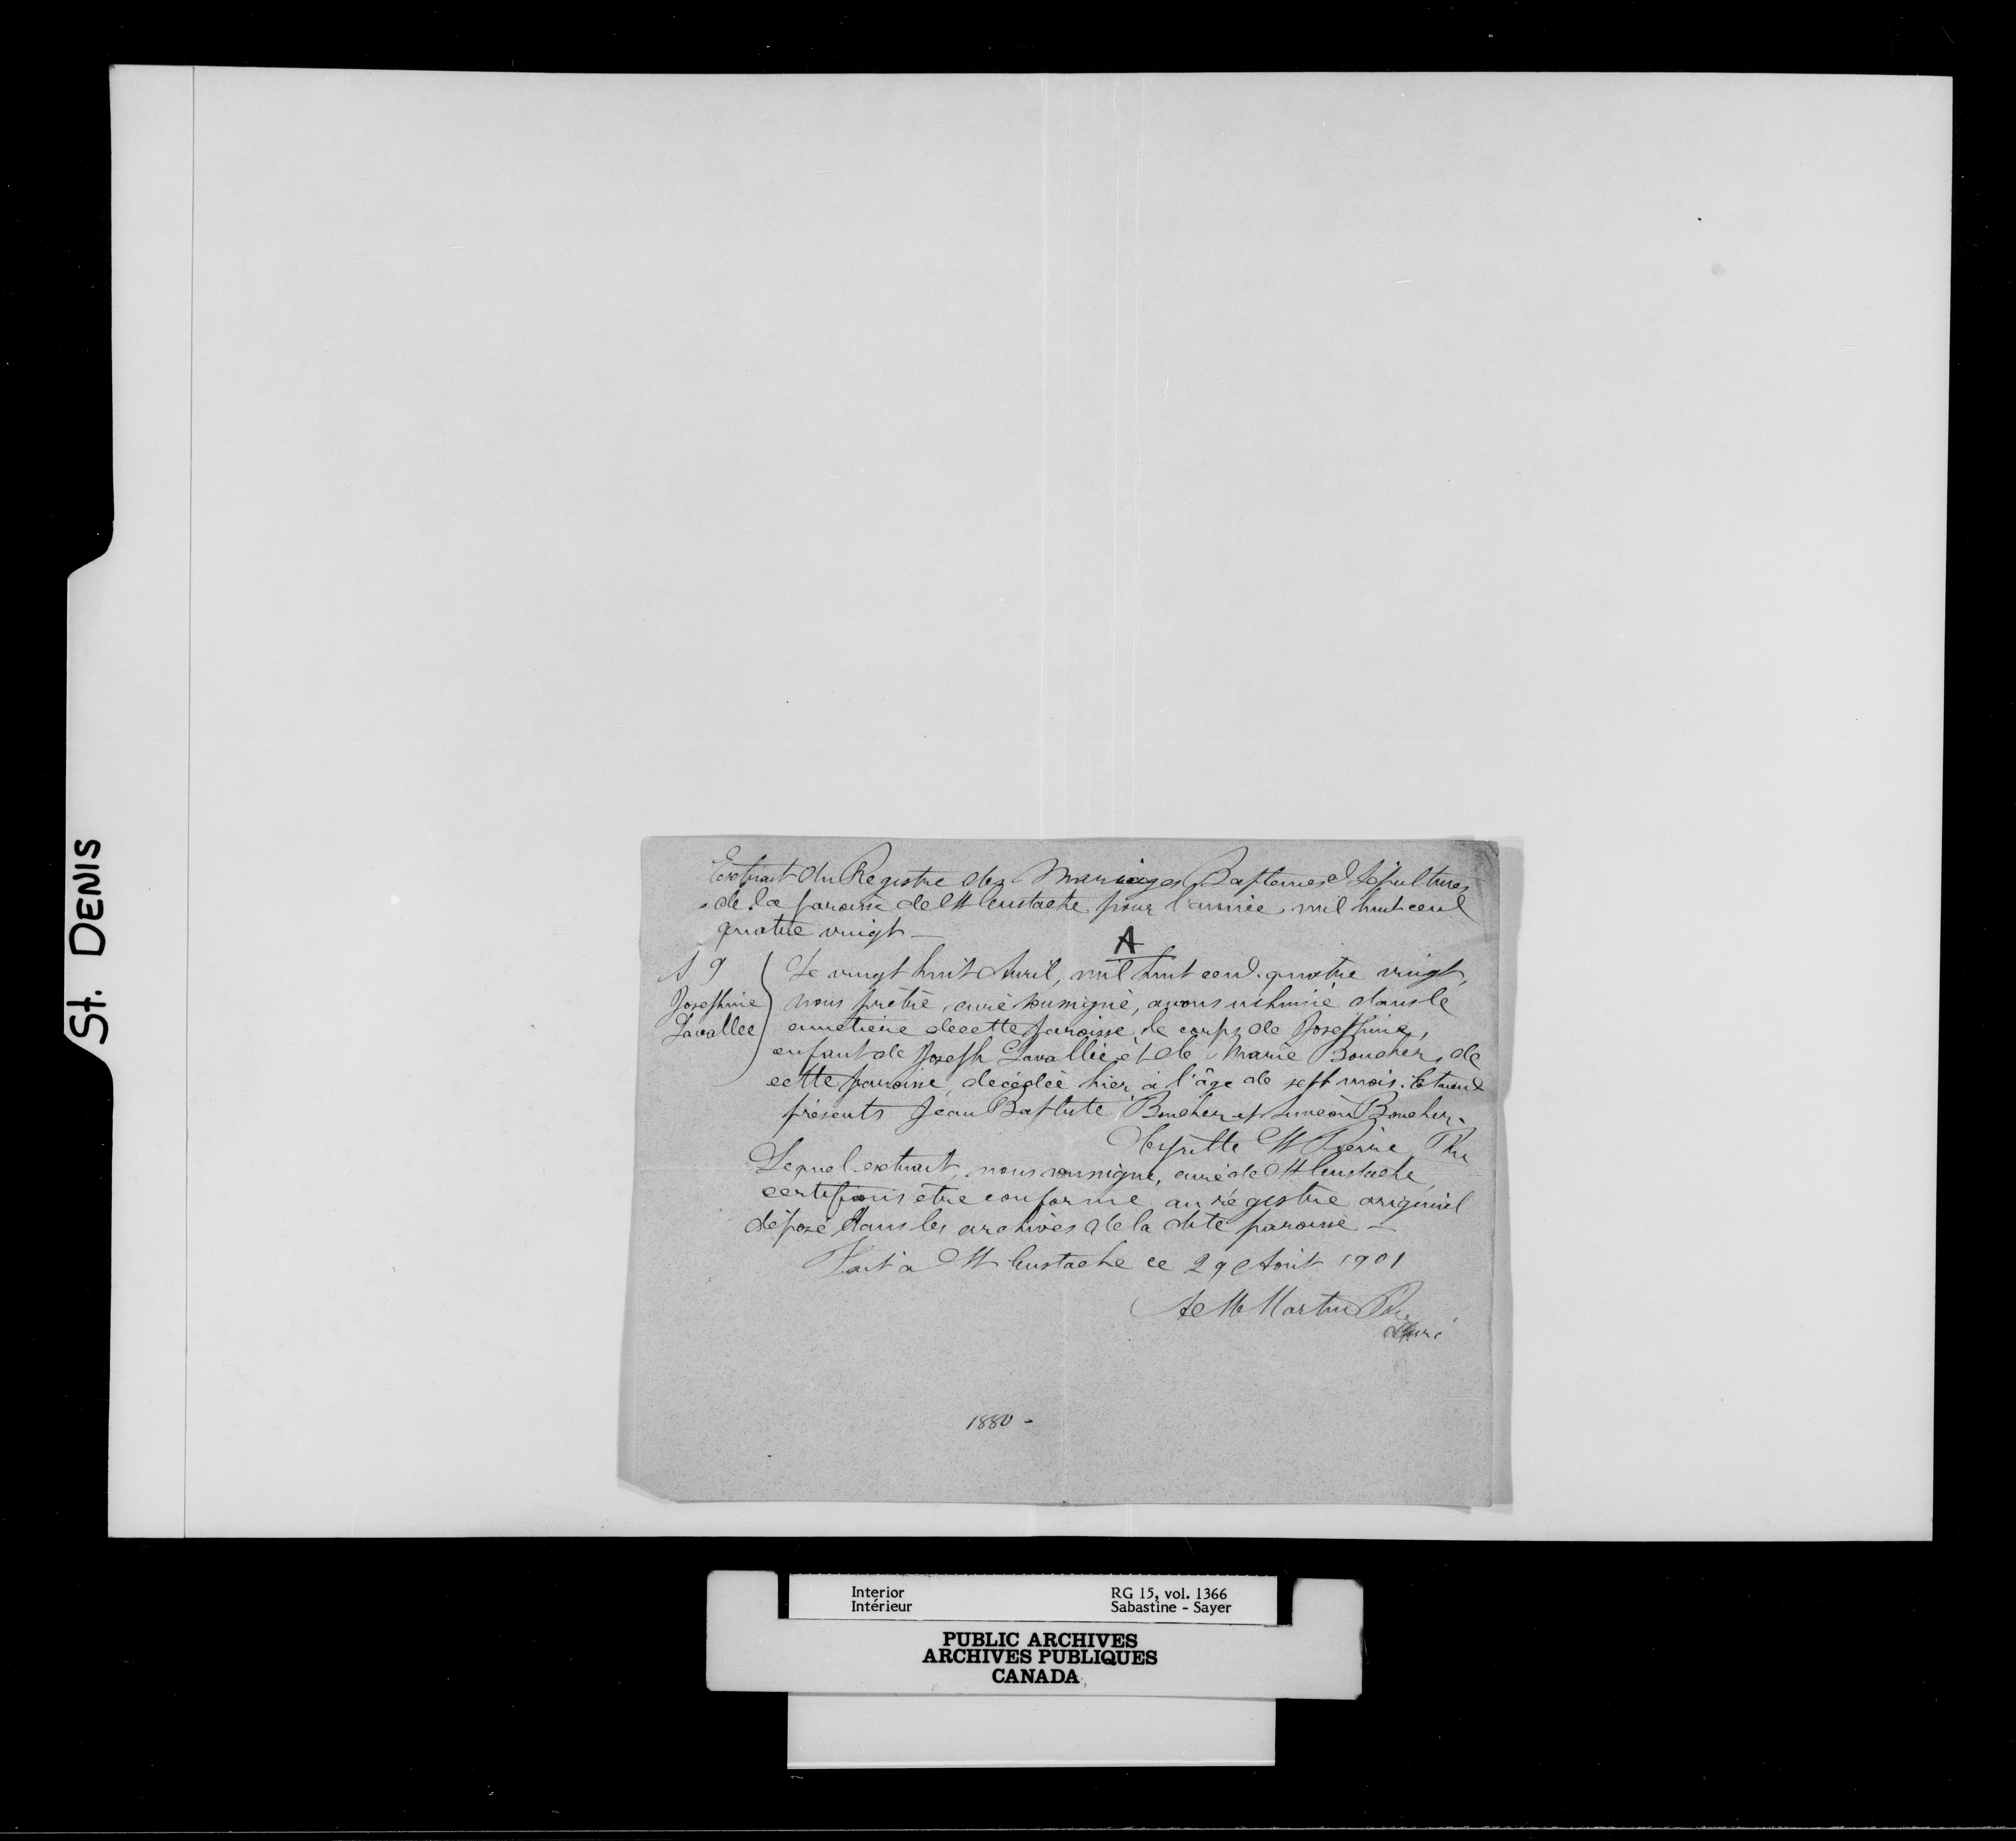 St. DENIS
Extrait du Registre des Mariages Baptemes & Sépultures
de la paroisse de St Eustache pour l'année mil huit cent
quatre vingt —
A
S 9
Josephine
Lavallee
Le vingt huit Avril, mil huit cent quatre vingt,
nous prêtre curé soussigné, avons inhumé dans le
cimetière de cette paroisse, le corps de Josephine,
enfant de Joseph Lavallée et de Marie Boucher, de
cette paroisse, décédée hier à l'âge de sept mois. Etaient
présents Jean Baptiste Boucher et Simeon Boucher.
St Pierre Ptre
Lequel extrait, nous soussigné, curé de St Eustache
certifions être conforme au régistre original
déposé dans les archives de la dite paroisse —
Fait à St Eustache ce 29 Aout 1901
Martin Ptre
Curé
1880 -
Interior
Intérieur
RG 15, vol. 1366
Sabastine - Sayer
PUBLIC ARCHIVES
ARCHIVES PUBLIQUES
CANADA